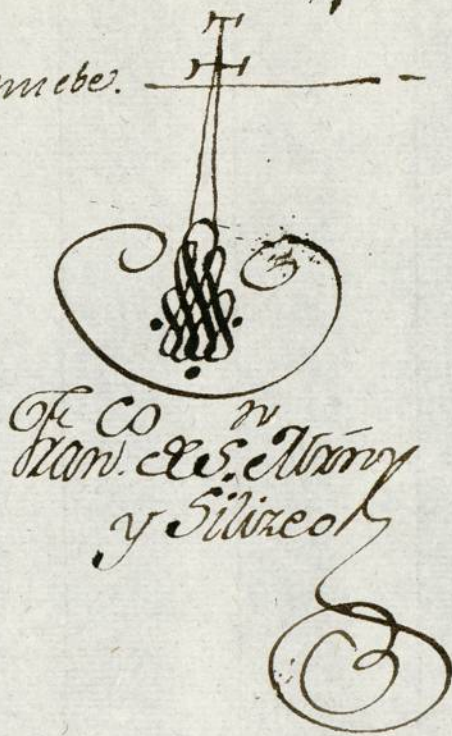 nuebe.
Fran.co de S.n Mrn
y Silizeo